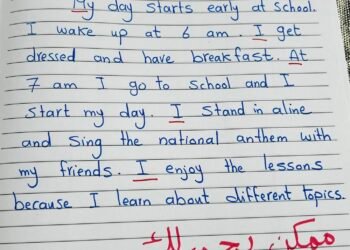 My day starts early at school.
I wake up at 6 am. I get
dressed and have breakfast. At
7 am I go to school and I
start my day. I stand in aline
and sing the national anthem with
my friends. I enjoy the lessons
because I learn about different topics.
ممكن